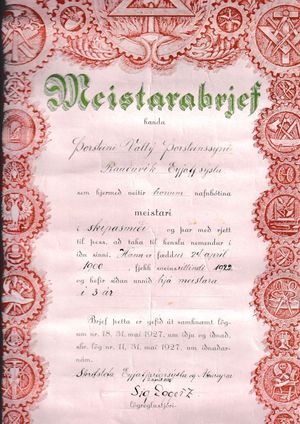 Meistarabrjef
handa
Þorsteini Valtý Þorsteinssyni
Rauðuvík Eyjafj. sýslu
sem hjermeð veitir honum nafnbótina
meistari
í skipasmíði og þar með rjett
til þess, að taka til kenslu nemendur í
iðn sinni. Hann er fæddur 24 apríl
1900, fjekk sveinsbrjef 1922
og hefir síðan unnið hjá meistara
í 3 ár
Brjef þetta er gefið út samkvæmt lög-
um nr. 18, 31. maí 1927, um iðju og iðnað,
sbr. lög nr. 11, 31. maí 1927, um iðnaðar-
nám.
Skrifstofu Eyjafjarðarsýslu og Akureyrar
Sig Eggerz
lögreglustjóri